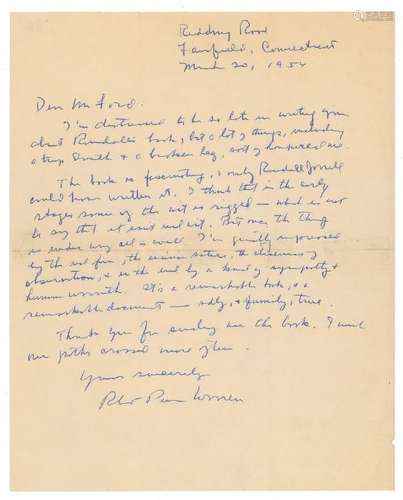 Redding Road
Fairfield, Connecticut
March 20, 1954
Dear Mr Ford:
I'm distressed to be so late in writing you
about Randall's book, but a lot of things, including
a trip South & a broken leg, sort of hampered me.
The book is fascinating, & only Randall Jarrell
could have written it. I think that in the early
stages some of the wit is rigged — which is not
to say that it isn't wit. But once the thing
is under way all is well. I'm greatly impressed
by the the satire, the
observation, & in the end by a kind of sympathy &
human warmth. It's a remarkable book, & a
remarkable document — sadly, & funnily, true.
Thank you for sending me the book. I wish
our paths crossed more often.
Yours sincerely,
Robt Penn Warren